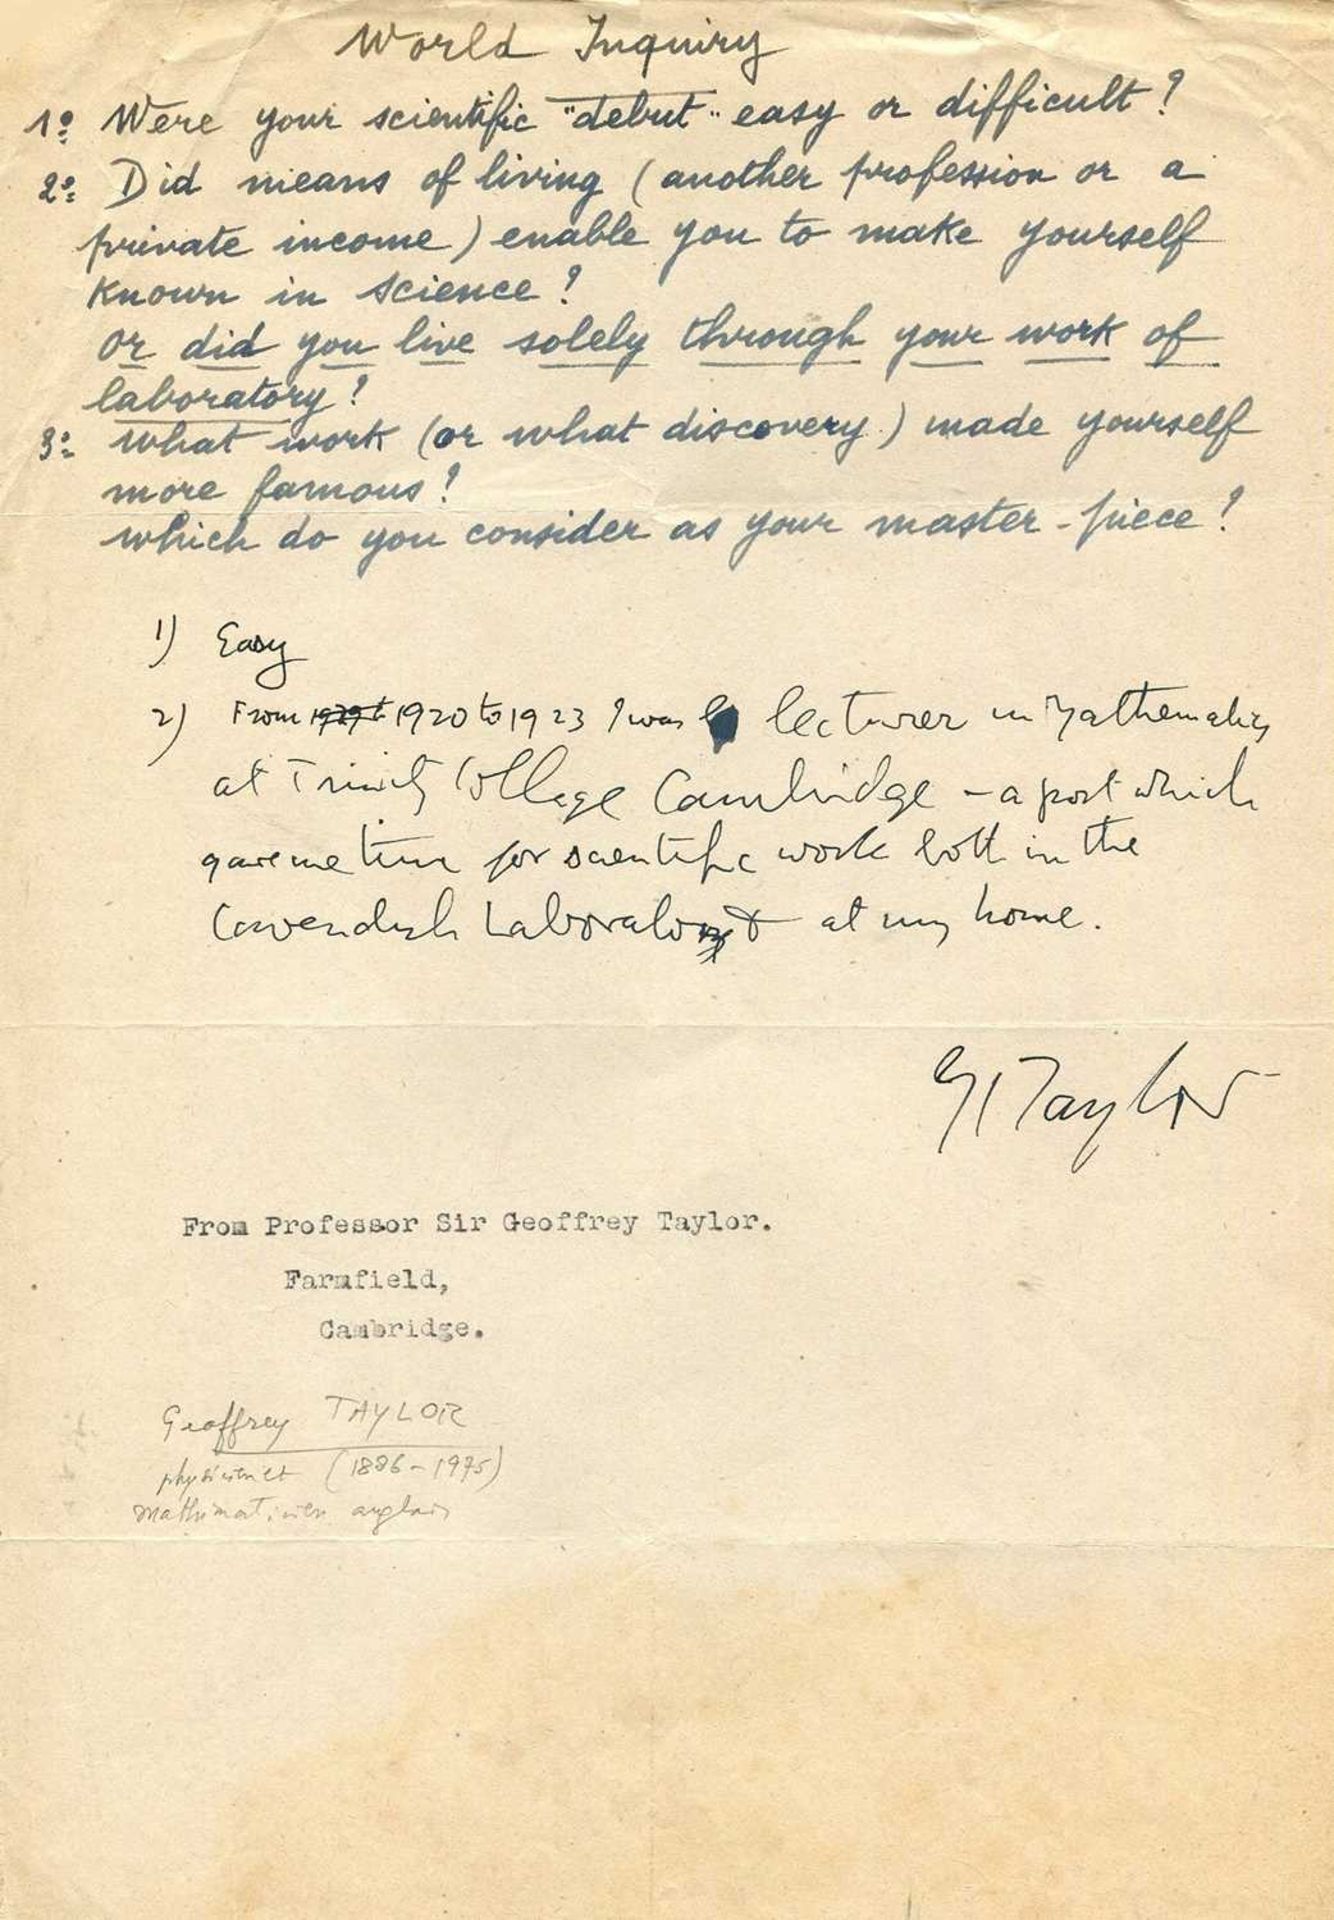 World Inquiry
1º Were your scientific "debut" easy or difficult?
2º Did means of living (another profession or a
private income) enable you to make yourself
known in science?
or did you live solely through your work of
laboratory?
3º what work (or what discovery) made yourself
more famous?
which do you consider as your master-piece?
1) Easy
2) From 1920 to 1923 I was lecturer in Mathematics
at Trinity College Cambridge - a post which
gave me time for scientific work both in the
Cavendish Laboratory & at my home.
GI Taylor
From Professor Sir Geoffrey Taylor.
Farmfield,
Cambridge.
Geoffrey TAYLOR
(1886-1975)
mathématicien anglais